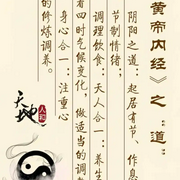 黄帝内经》之“道”
阴阳之道：起居有节、作息
节制情绪；
调理饮食：天人合一：养生
四时气候变化，做适当的调
身心合一：注重心
的修炼调养。
天地
人和